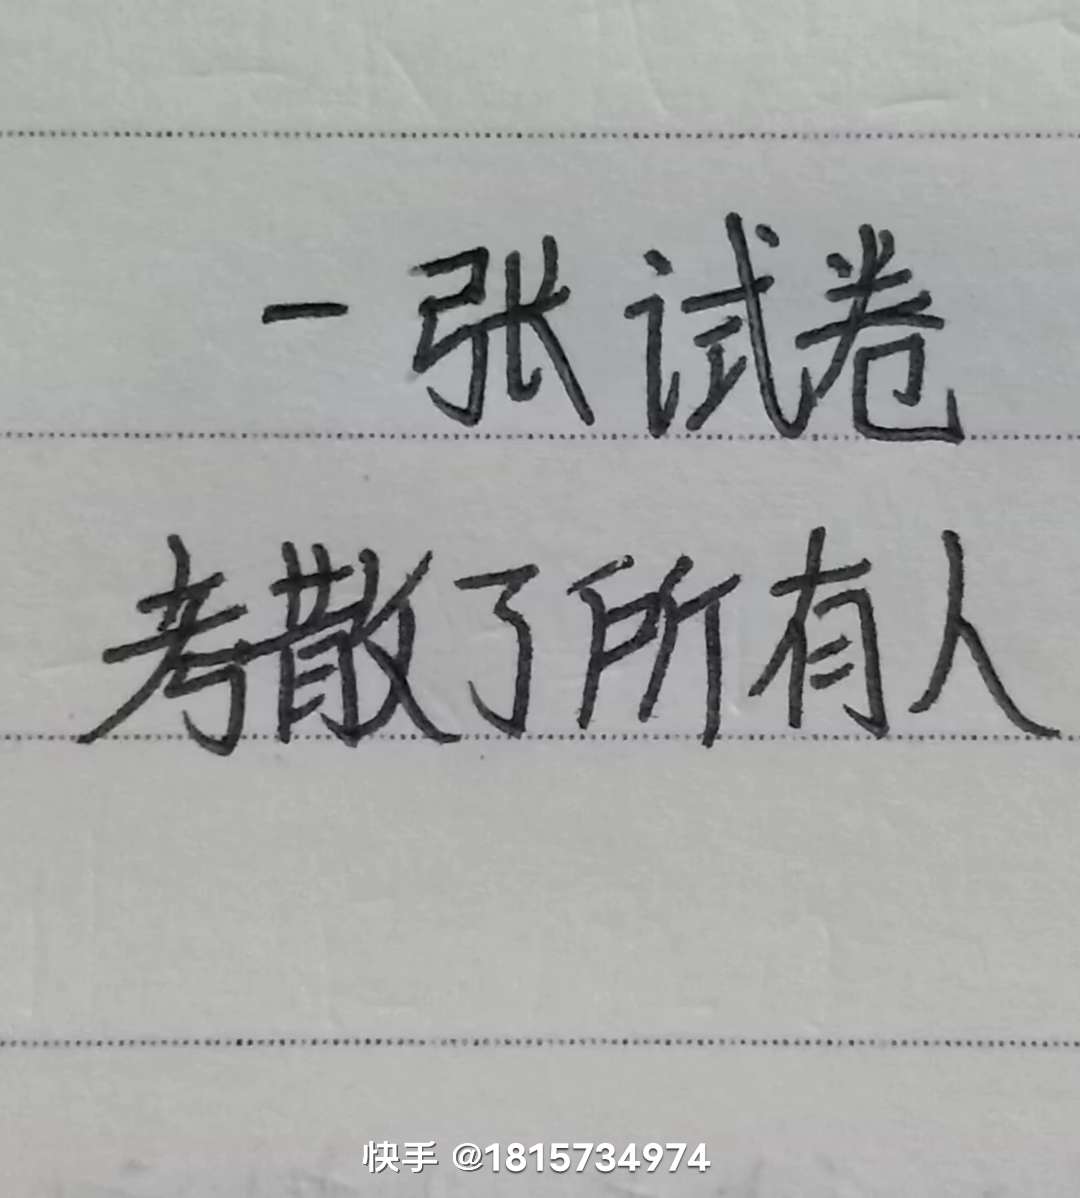 一张试卷
考散了所有人
快手 @1815734974